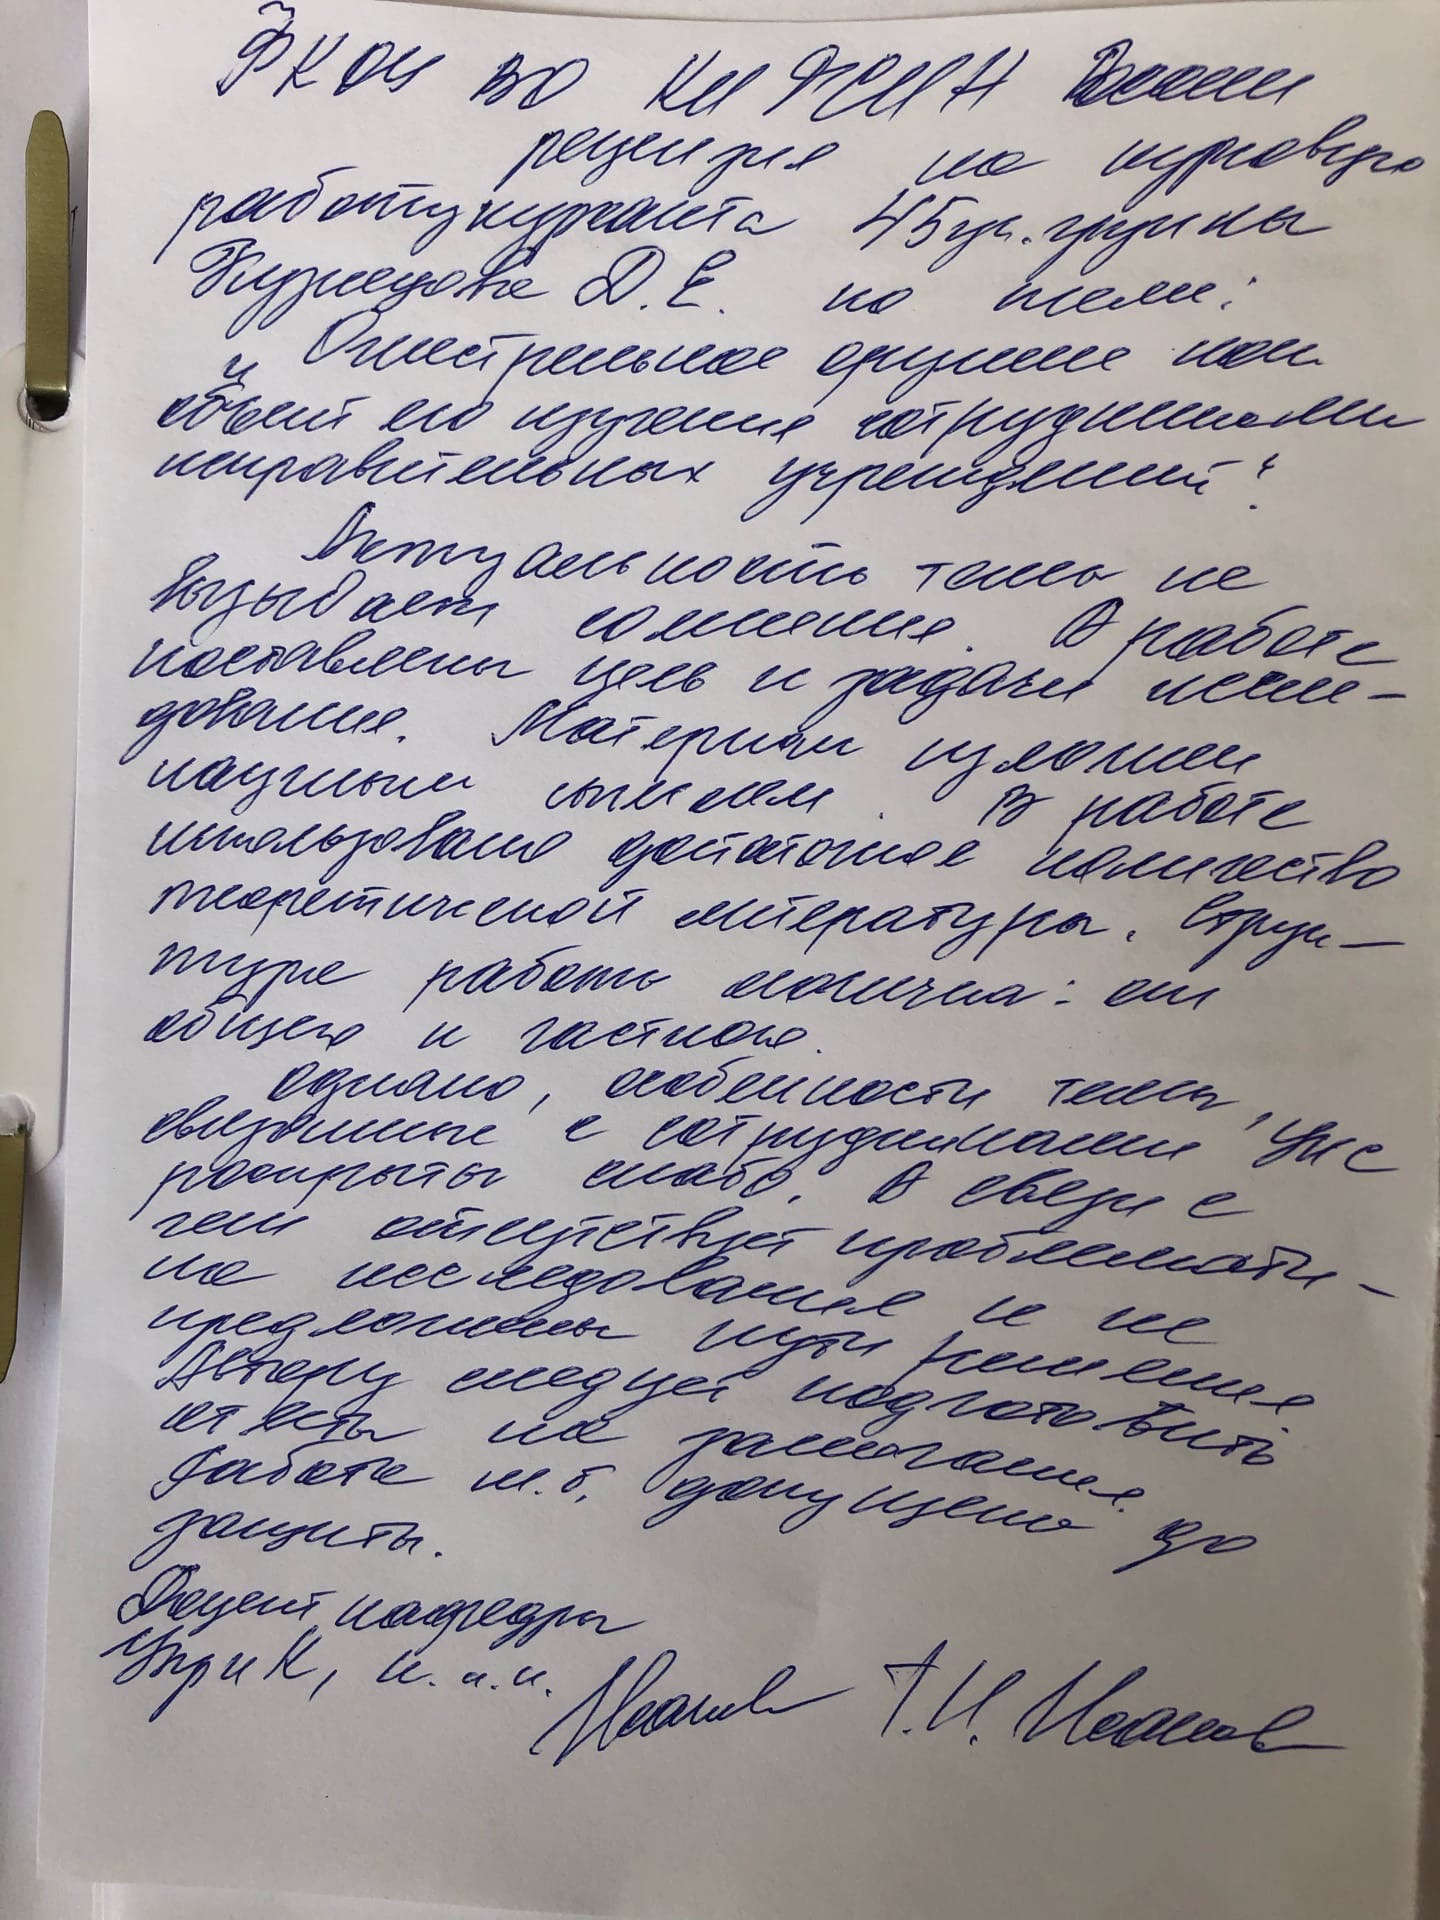 ФКОУ ВО КИ ФСИН России
рецензия на курсовую
работу курсанта 45 уч. группы
Кузнецова Д.Е. по теме:
"Огнестрельное оружие как
объект его изучения сотрудниками
исправительных учреждений"
Актуальность темы не
вызывает сомнения. В работе
поставлены цель и задачи иссле-
дования. Материал изложен
научным языком. В работе
использовано достаточное количество
теоретической литературы. Струк-
тура работы логична: от
общего к частного.
Однако, особенности темы,
связанные с сотрудниками УИС
раскрыты слабо. В связи с
чем отсутствует проблемати-
ка исследования и не
предложены пути решения
Автору следует подготовить
ответы на замечания.
Работа м.б. допущена до
защиты.
Доцент кафедры
УПДиК, к.п.н.
Т.И.